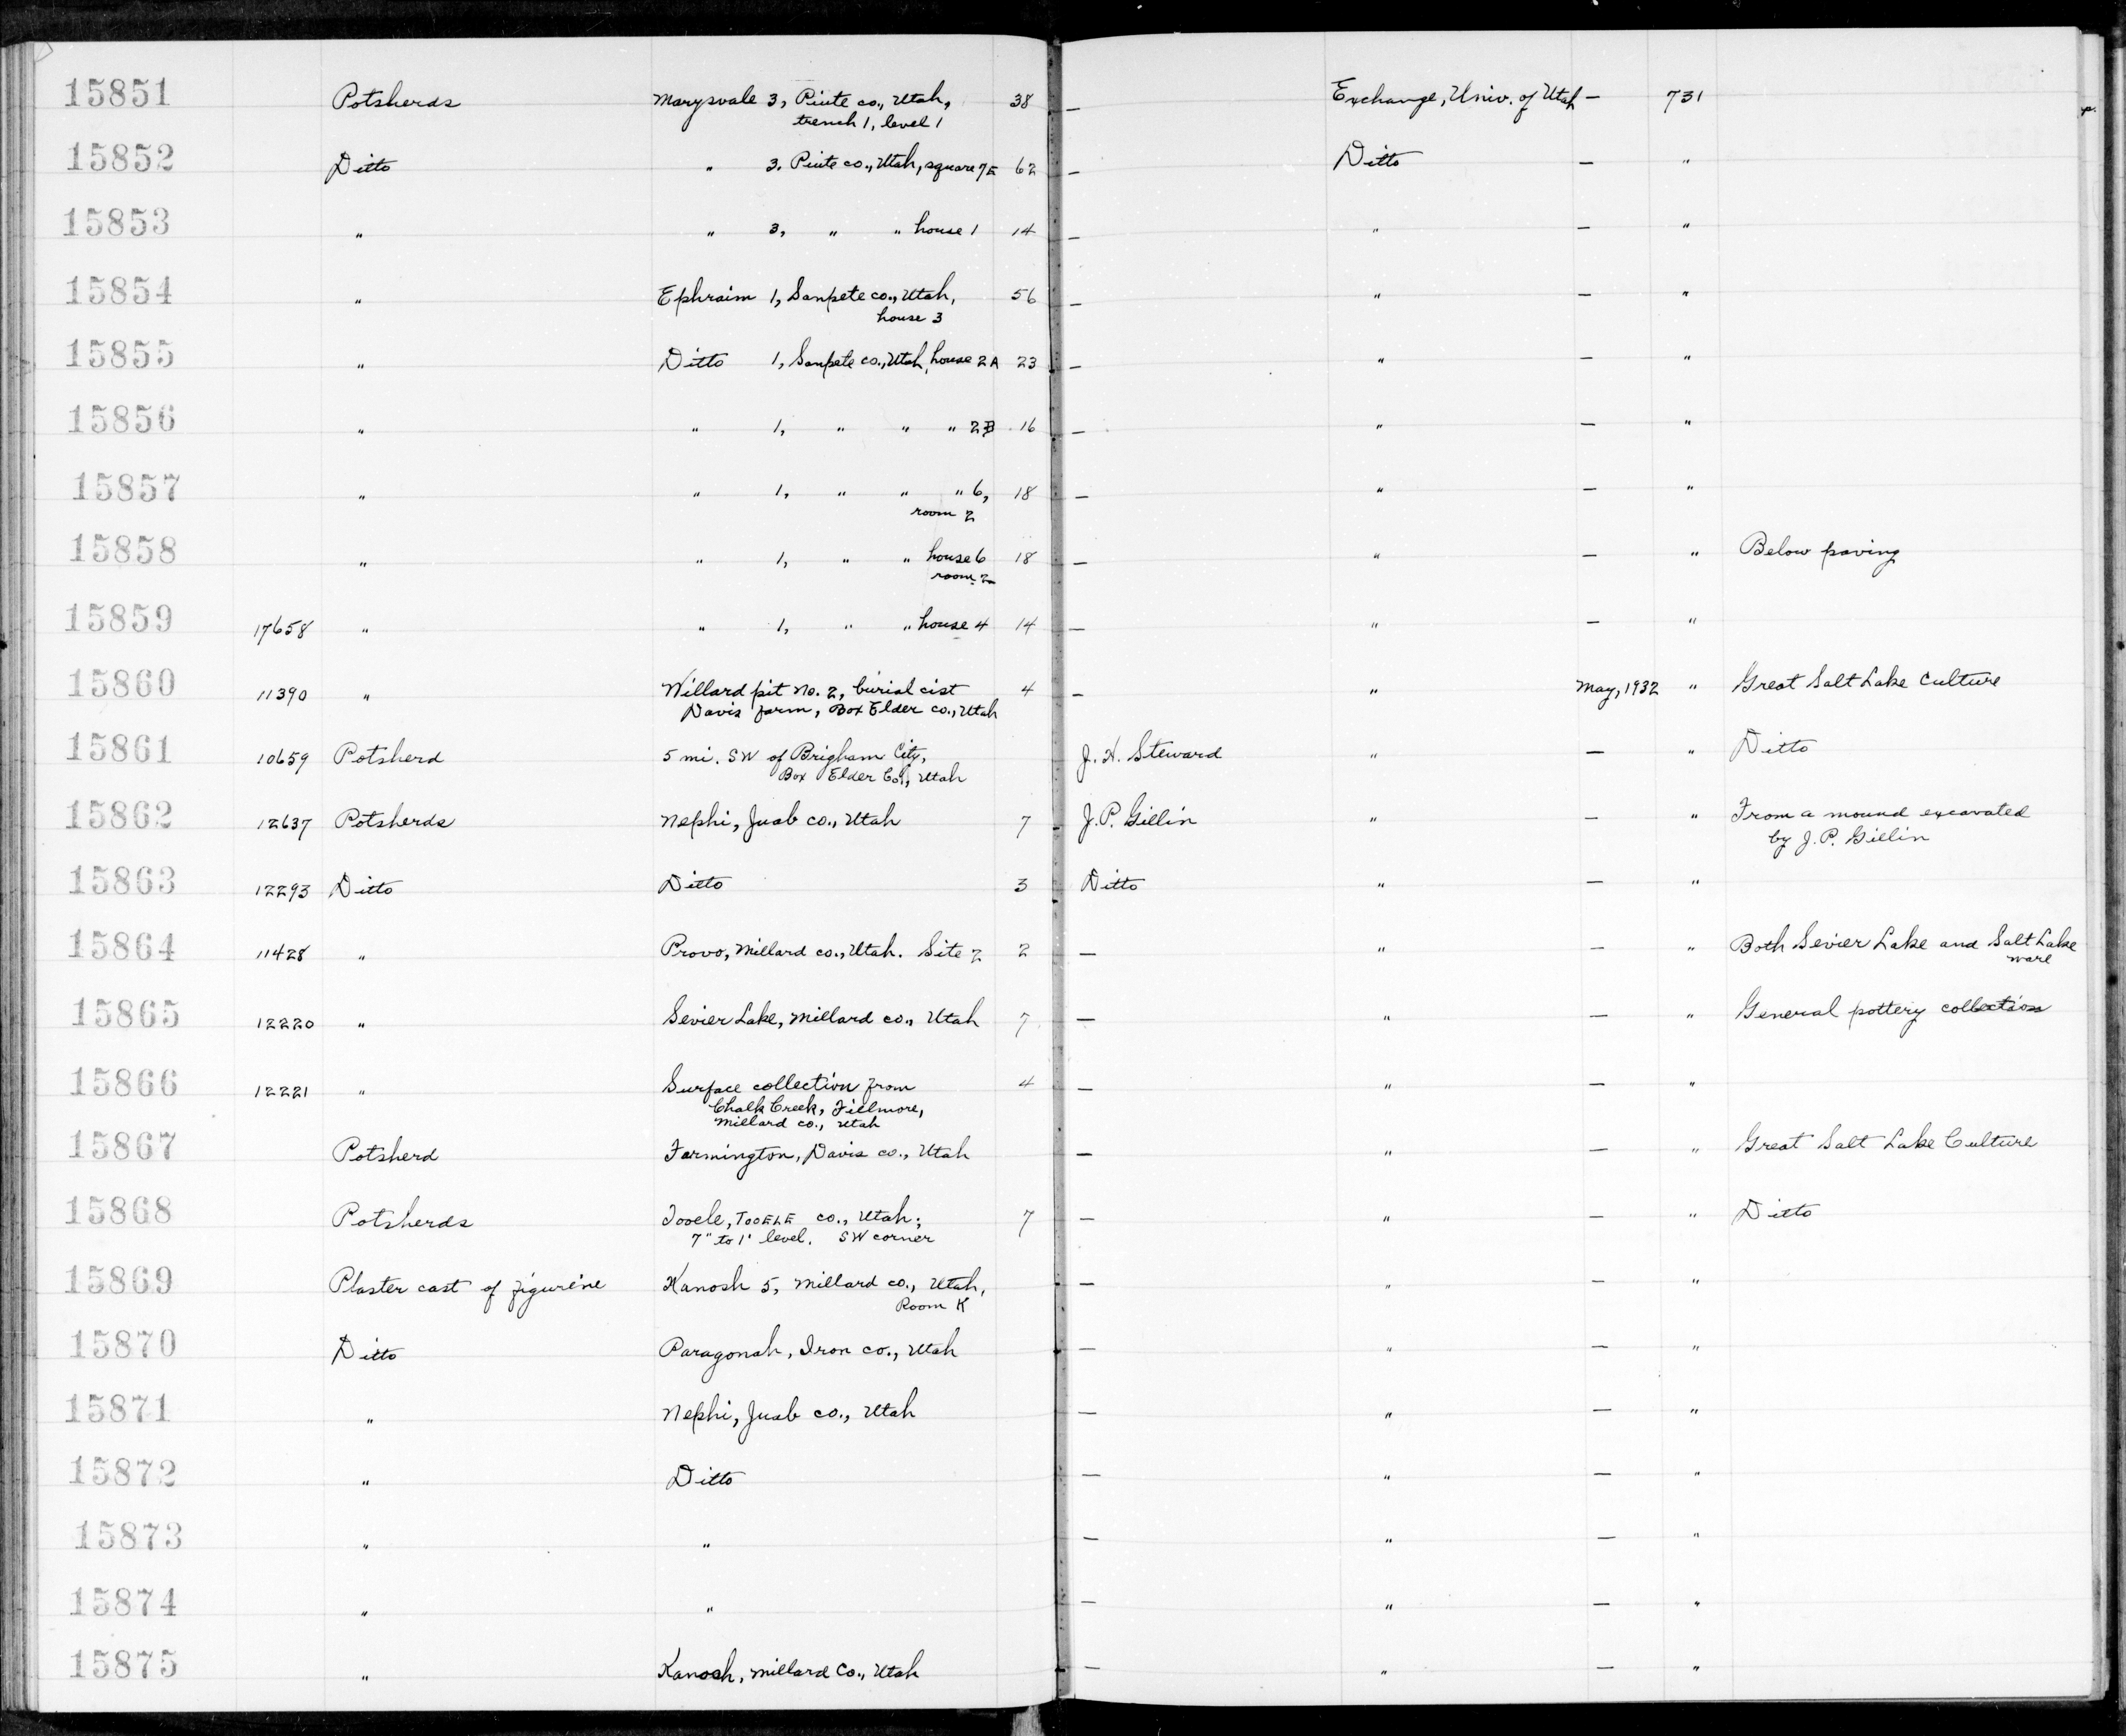 15851 Potsherds Marysvale 3, Piute co., Utah, 38 — Exchange, Univ. of Utah — 731
trench 1, level 1
15852 Ditto " 3. Piute co., Utah, square 7E 62 — Ditto — "
15853 " " 3, " " house 1 14 — " — "
15854 " Ephraim 1, Sanpete co., Utah, 56 — " — "
house 3
15855 " Ditto 1, Sanpete co., Utah, house 2A 23 — " — "
15856 " " 1, " " " 2B 16 — " — "
15857 " " 1, " " " 6, 18 — " — "
room 2
15858 " " 1, " " house 6 18 — " — " Below paving
room 2
15859 17658 " " 1, " " house 4 14 — " — "
15860 11390 " Willard pit No. 2, burial cist 4 — " May, 1932 " Great Salt Lake Culture
Davis farm, Box Elder co., Utah
15861 10659 Potsherd 5 mi. SW of Brigham City, J. H. Steward " — " Ditto
Box Elder Co., Utah
15862 12637 Potsherds Nephi, Juab co., Utah 7 J. P. Gillin " — " From a mound excavated
by J. P. Gillin
15863 12293 Ditto Ditto 3 Ditto " — "
15864 11428 " Provo, Millard co., Utah. Site 2 2 — " — " Both Sevier Lake and Salt Lake
ware
15865 12220 " Sevier Lake, Millard co., Utah 7 — " — " General pottery collection
15866 12221 " Surface collection from 4 — " — "
Chalk Creek, Fillmore,
Millard co., Utah
15867 Potsherd Farmington, Davis co., Utah — " — " Great Salt Lake Culture
15868 Potsherds Tooele, TOOELE co., Utah; 7 — " — " Ditto
7" to 1' level. SW corner
15869 Plaster cast of figurine Kanosh 5, Millard co., Utah, — " — "
Room K
15870 Ditto Paragonah, Iron co., Utah — " — "
15871 " Nephi, Juab co., Utah — " — "
15872 " Ditto — " — "
15873 " " — " — "
15874 " " — " — "
15875 " Kanosh, Millard Co., Utah — " — "